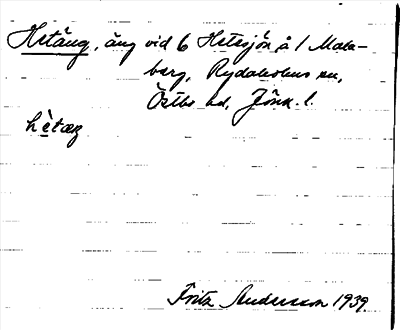 Hetäng, äng vid 6 Hetesjön å 1 Male-
berg, Rydaholms sn,
Östbo hd, Jönk. l.
hètæŋ
Fritz Andersson 1939.